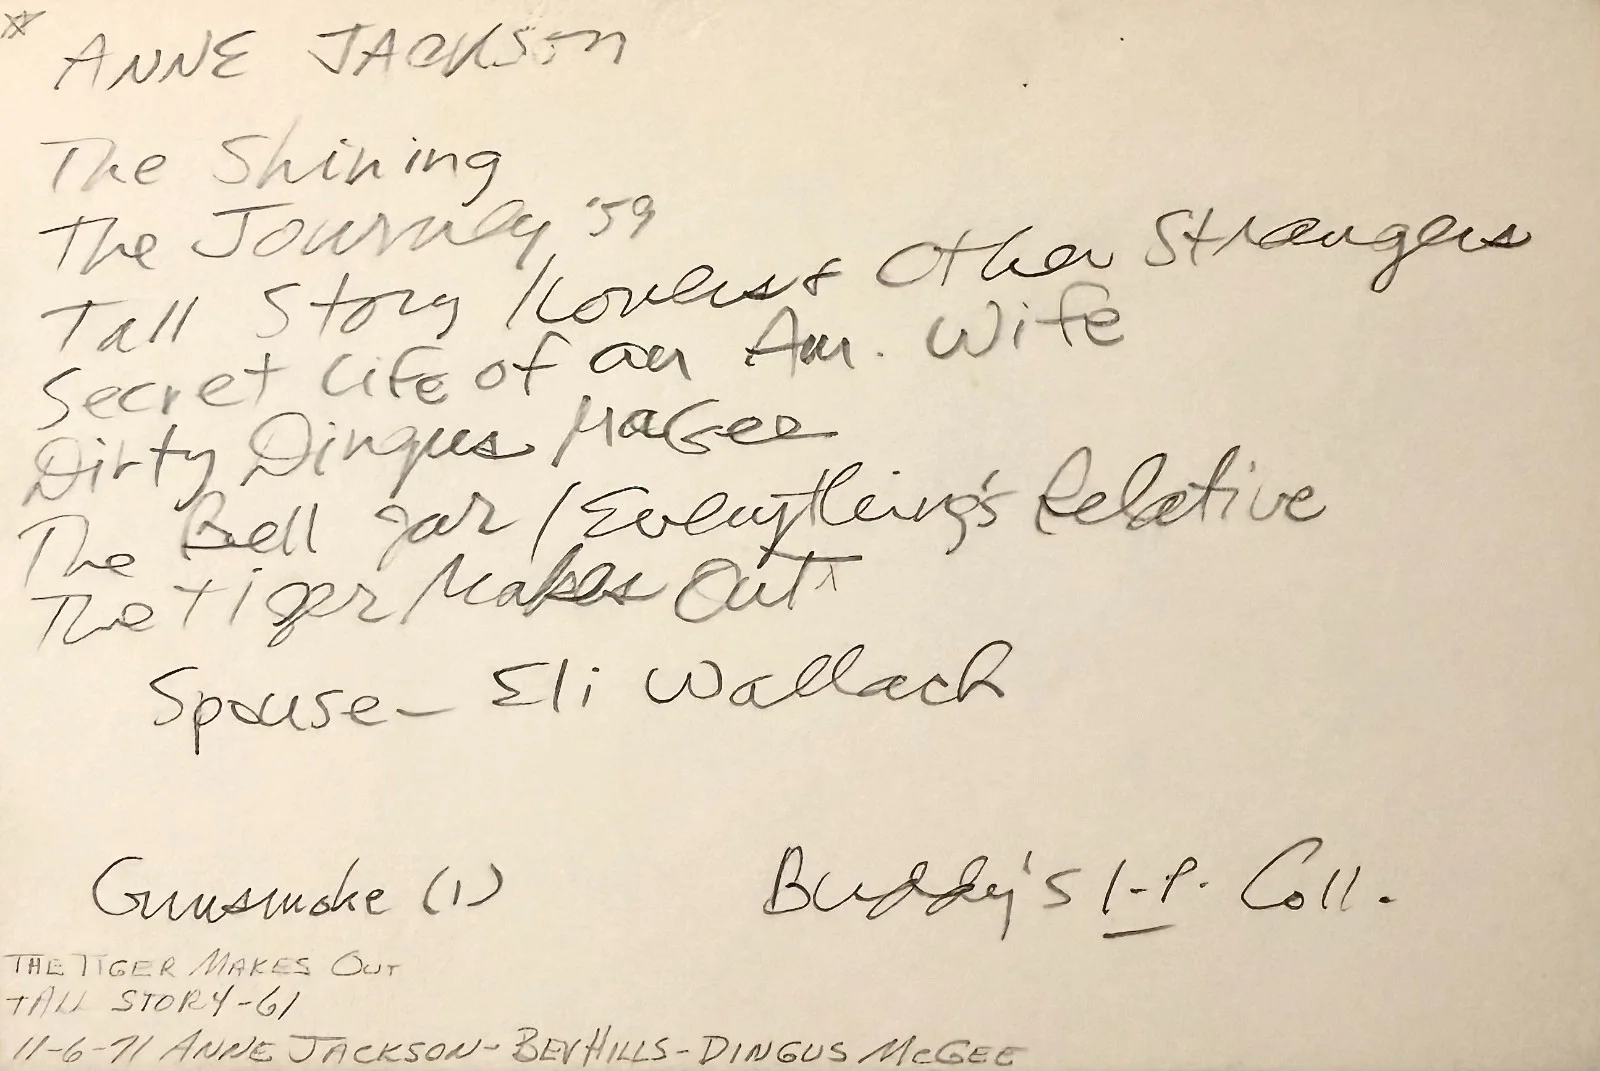 ANNE JACKSON
The Shining
The Journey '59
Tall Story / Lovers & Other Strangers
Secret Life of an Am. Wife
Dirty Dingus MaGee
The Bell Jar / Everything's Relative
The Tiger Makes Out
Spouse - Eli Wallach
Gunsmoke (1)
Buddy's I-P. Coll.
THE TIGER MAKES OUT
TALL STORY-61
11-6-71 ANNE JACKSON - BEV HILLS - DINGUS McGEE